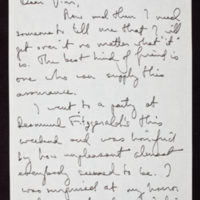 Dear Vivi,
Now and then I need
someone to tell me that I will
get over it no matter what "it"
is. The best kind of friend is
one who can supply this
assurance.
I went to a party at
Desmond Fitzgerald's this
weekend and was horrified
by how unpleasant almost
everybody seemed to be. I
was surprised at my horror.